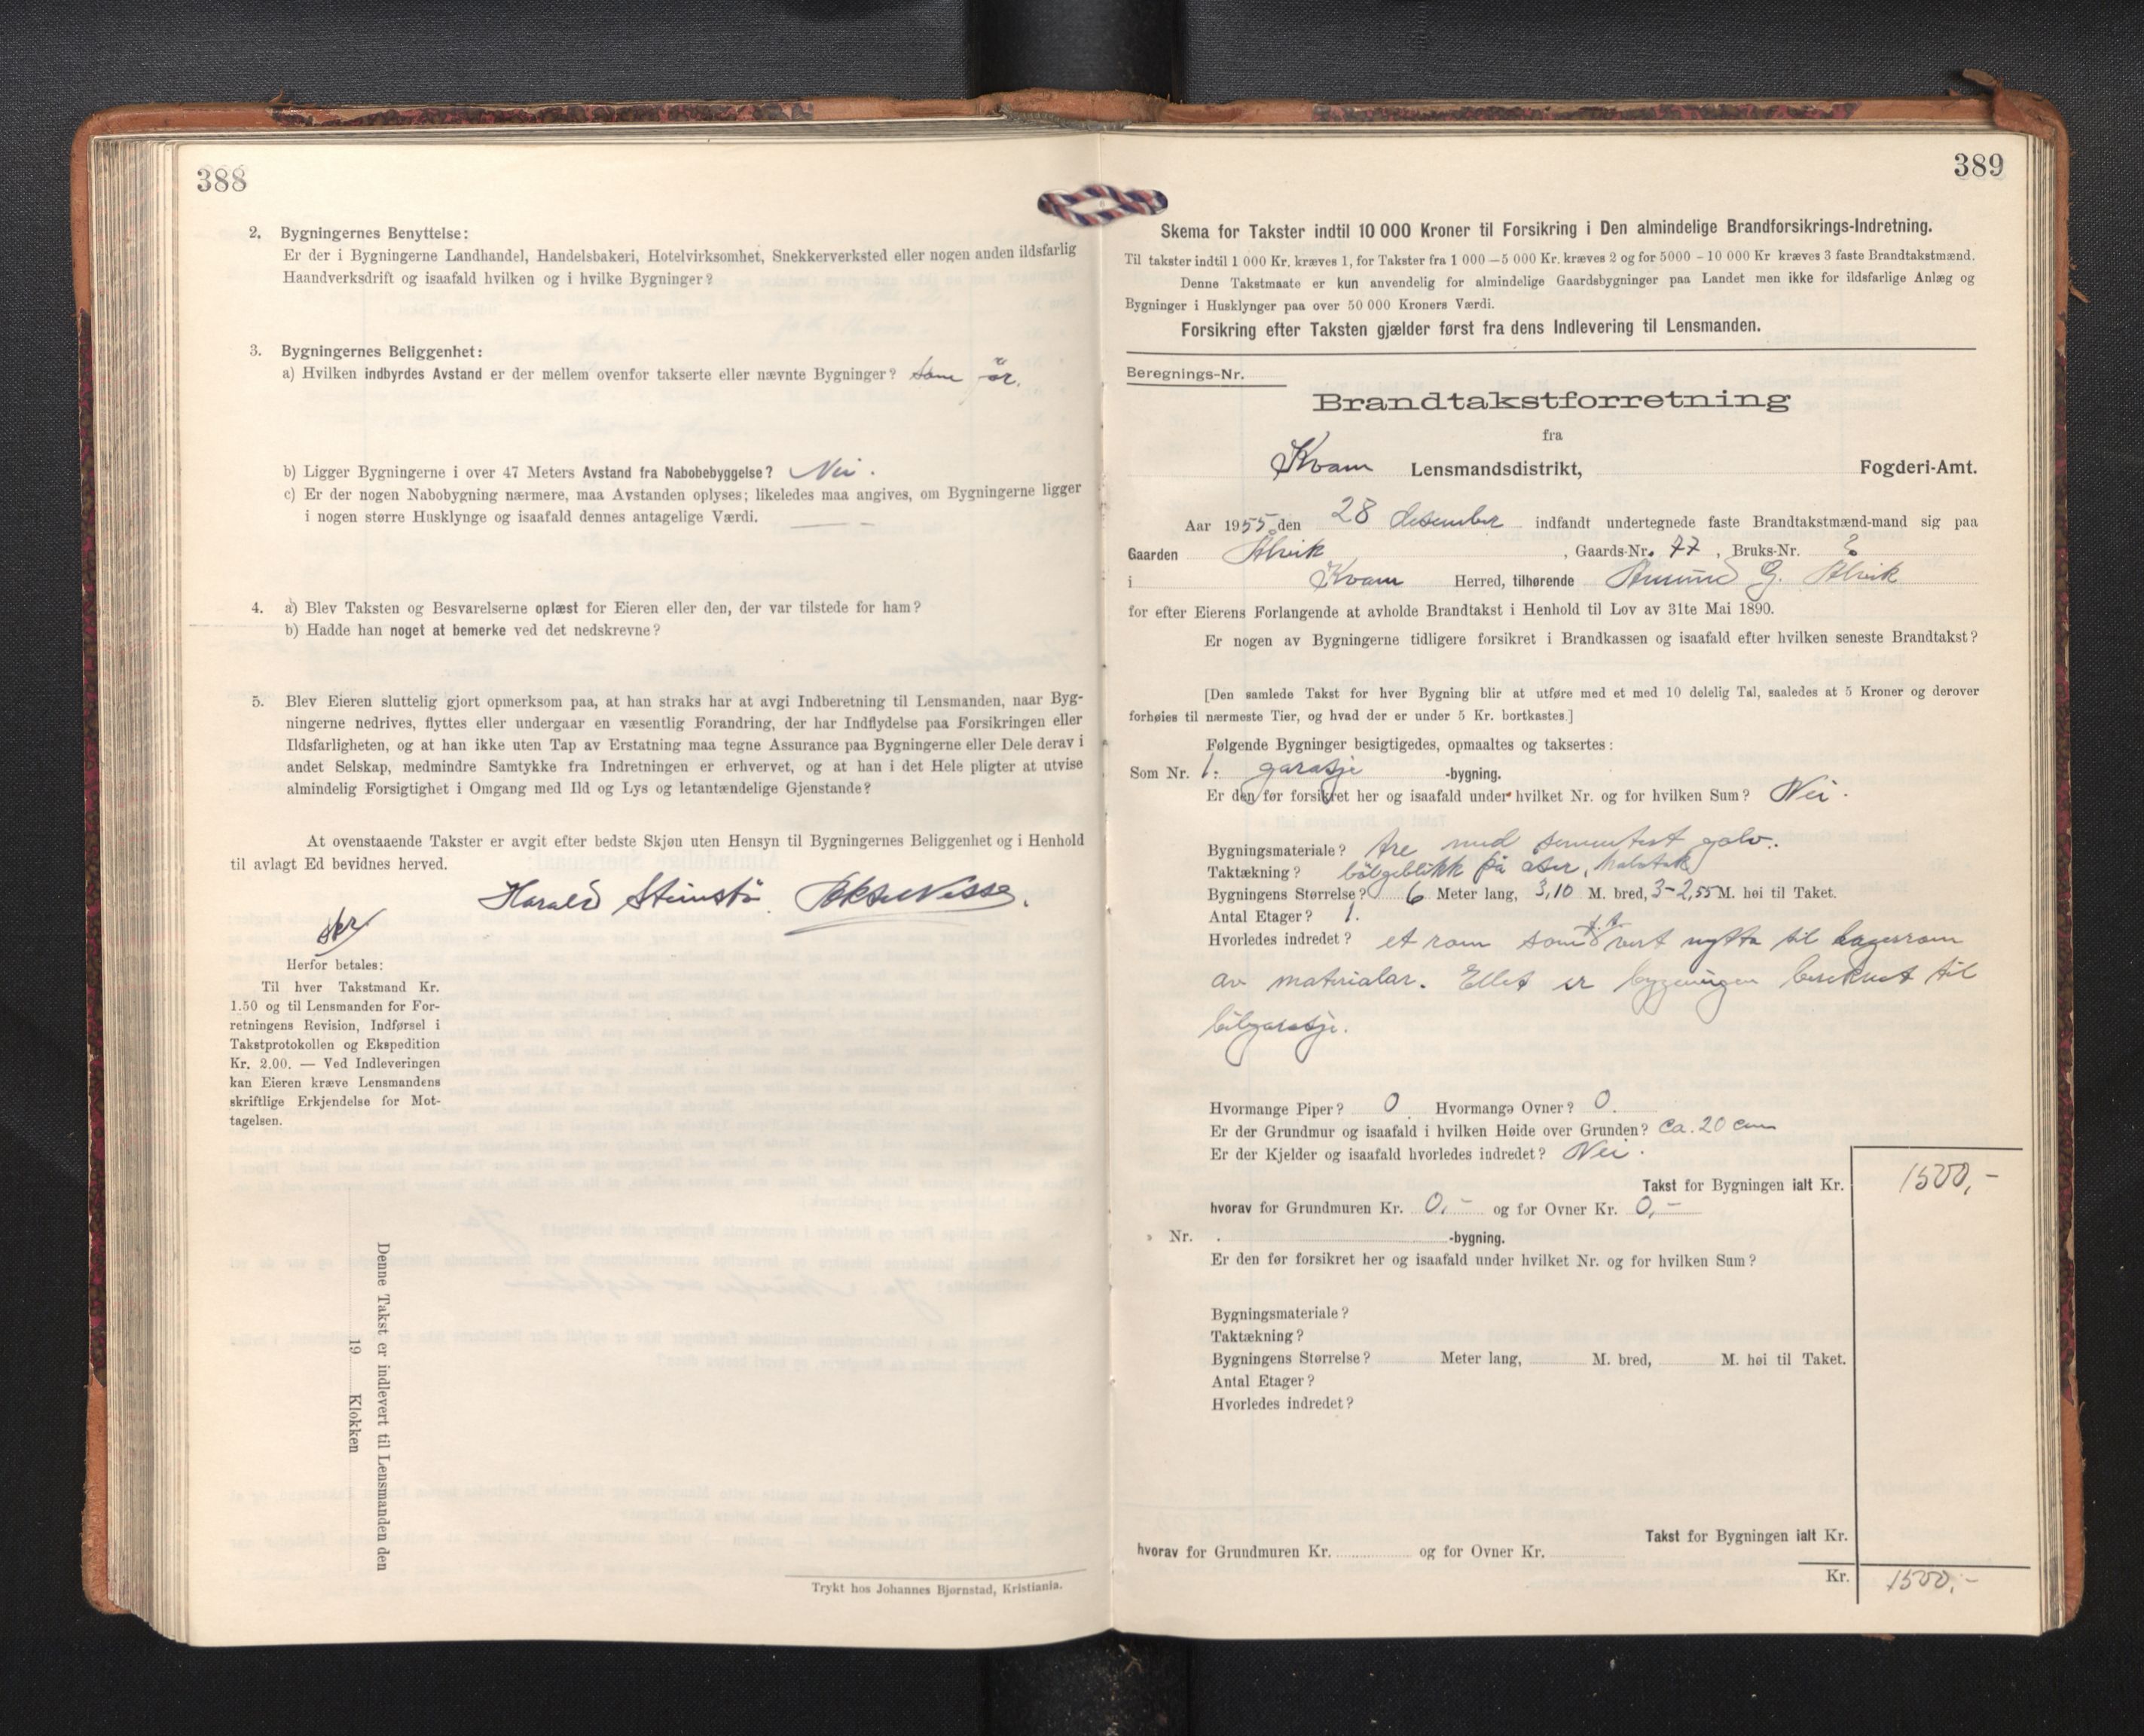 388
2. Bygningernes Benyttelse:
Er der i Bygningerne Landhandel, Handelsbakeri, Hotelvirksomhet, Snekkerverksted eller nogen anden ildsfarlig
Haandverksdrift og isaafald hvilken og i hvilke Bygninger?
3. Bygningernes Beliggenhet:
a) Hvilken indbyrdes Avstand er der mellem ovenfor takserte eller nævnte Bygninger? som før.
b) Ligger Bygningerne i over 47 Meters Avstand fra Nabobebyggelse? Nei.
c) Er der nogen Nabobygning nærmere, maa Avstanden oplyses; likeledes maa angives, om Bygningerne ligger
i nogen større Husklynge og isaafald dennes antagelige Værdi.
4. a) Blev Taksten og Besvarelserne oplæst for Eieren eller den, der var tilstede for ham?
b) Hadde han noget at bemerke ved det nedskrevne?
5. Blev Eieren sluttelig gjort opmerksom paa, at han straks har at avgi Indberetning til Lensmanden, naar Byg-
ningerne nedrives, flyttes eller undergaar en væsentlig Forandring, der har Indflydelse paa Forsikringen eller
Ildsfarligheten, og at han ikke uten Tap av Erstatning maa tegne Assurance paa Bygningerne eller Dele derav i
andet Selskap, medmindre Samtykke fra Indretningen er erhvervet, og at han i det Hele pligter at utvise
almindelig Forsigtighet i Omgang med Ild og Lys og letantændelige Gjenstande?
At ovenstaaende Takster er avgit efter bedste Skjøn uten Hensyn til Bygningernes Beliggenhet og i Henhold
til avlagt Ed bevidnes herved.
Harald Steinstø.
Herfor betales:
Til hver Takstmand Kr.
1.50 og til Lensmanden for For-
retningens Revision, Indførsel i
Takstprotokollen og Ekspedition
Kr. 2.00. — Ved Indleveringen
kan Eieren kræve Lensmandens
skriftlige Erkjendelse for Mot-
tagelsen.
Denne Takst er indlevert til Lensmanden den
19 Klokken
Trykt hos Johannes Bjørnstad, Kristiania.
389
Skema for Takster indtil 10 000 Kroner til Forsikring i Den almindelige Brandforsikrings-Indretning.
Til takster indtil 1 000 Kr. kræves 1, for Takster fra 1 000 – 5 000 Kr. kræves 2 og for 5000 – 10 000 Kr kræves 3 faste Brandtakstmænd.
Denne Takstmaate er kun anvendelig for almindelige Gaardsbygninger paa Landet men ikke for ildsfarlige Anlæg og
Bygninger i Husklynger paa over 50 000 Kroners Værdi.
Forsikring efter Taksten gjælder først fra dens Indlevering til Lensmanden.
Beregnings-Nr.
Brandtakstforretning
fra
Kvam Lensmandsdistrikt, Fogderi-Amt.
Aar 1955 den 28 desember indfandt undertegnede faste Brandtakstmænd-mand sig paa
Gaarden Ålvik, Gaards-Nr. 77, Bruks-Nr.
i Kvam Herred, tilhørende Åmund G. Ålvik
for efter Eierens Forlangende at avholde Brandtakst i Henhold til Lov av 31te Mai 1890.
Er nogen av Bygningerne tidligere forsikret i Brandkassen og isaafald efter hvilken seneste Brandtakst?
[Den samlede Takst for hver Bygning blir at utføre med et med 10 delelig Tal, saaledes at 5 Kroner og derover
forhøies til nærmeste Tier, og hvad der er under 5 Kr. bortkastes.]
Følgende Bygninger besigtigedes, opmaaltes og taksertes:
Som Nr. 1. garasje -bygning.
Er den før forsikret her og isaafald under hvilket Nr. og for hvilken Sum? Nei.
Bygningsmateriale? tre med sementert golv.
Taktækning? bølgeblikk på åser, halvtak
Bygningens Størrelse? 6 Meter lang, 3,10 M. bred, 3-2,55 M. høi til Taket.
Antal Etager? 1.
Hvorledes indredet? et rom som f.t. vert nytta til lagerrom
av materialar. Ellet er bygningen bereknet til
bilgarasje.
Hvormange Piper? 0 Hvormange Ovner? 0.
Er der Grundmur og isaafald i hvilken Høide over Grunden? ca. 20 cm
Er der Kjelder og isaafald hvorledes indredet? Nei.
Takst for Bygningen ialt Kr. 1500,-
hvorav for Grundmuren Kr. 0,- og for Ovner Kr. 0,-
» Nr. -bygning.
Er den før forsikret her og isaafald under hvilket Nr. og for hvilken Sum?
Bygningsmateriale?
Taktækning?
Bygningens Størrelse? Meter lang, M. bred, M. høi til Taket.
Antal Etager?
Hvorledes indredet?
Takst for Bygningen ialt Kr.
hvorav for Grundmuren Kr. og for Ovner Kr.
Kr. 1500,-